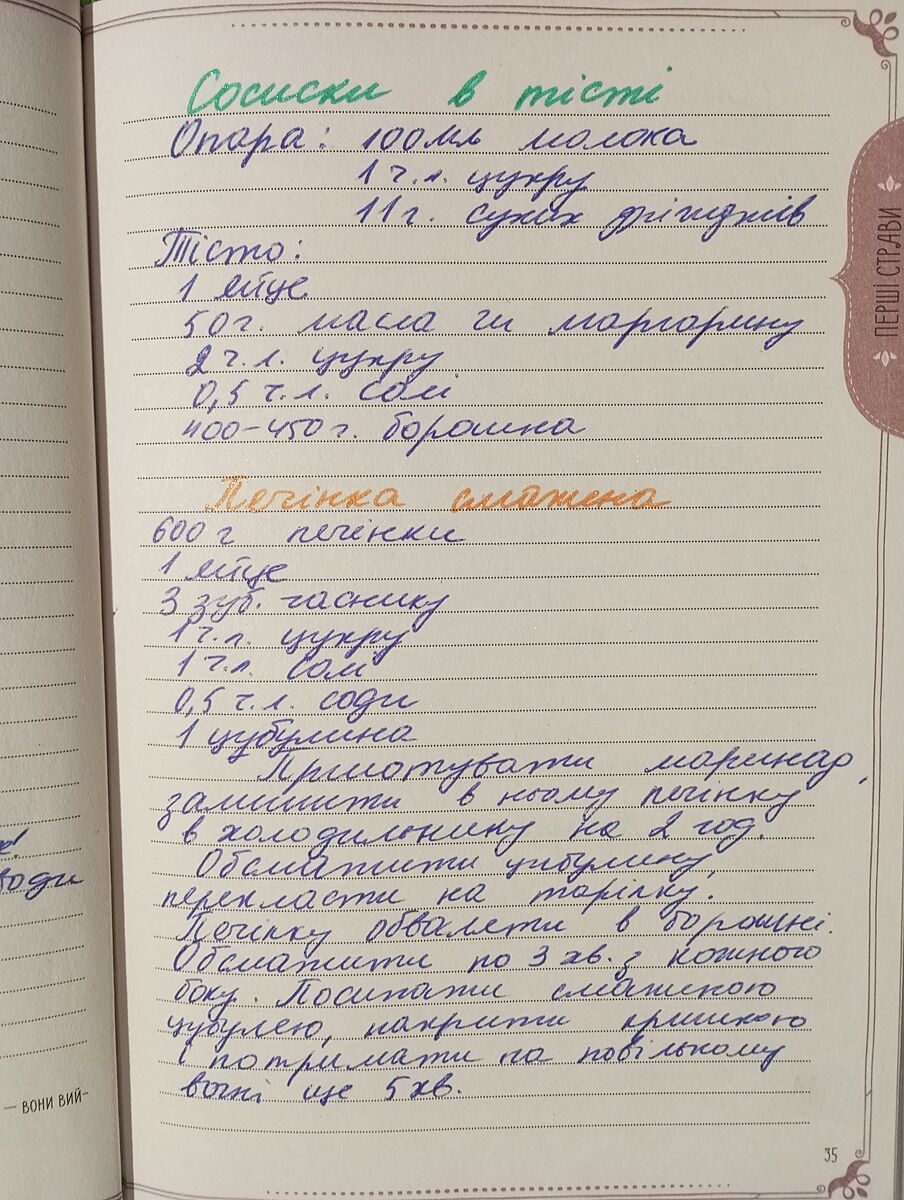 Сосиски в тісті
Опара: 100мл молока
1 ч.л. цукру
11г. сухих дріжджів
Тісто:
1 яйце
50г. масла чи маргарину
2 ч.л. цукру
0,5 ч.л. солі
400-450г. борошна
Печінка смажена
600г печінки
1 яйце
3 зуб. часнику
1ч.л. цукру
1ч.л. солі
0,5 ч.л. соди
1 цубулина
Приготувати маринад,
залишити в ньому печінку
в холодильнику на 2 год.
Обсмажити цибулину,
перекласти на тарілку.
Печінку обваляти в борошні.
Обсмажити по 3 хв. з кожного
боку. Посипати смаженою
цубулею, накрити кришкою
і потримати на повільному
вогні ще 5 хв.
ПЕРШІ СТРАВИ
35
оди
— ВОНИ ВИЙ-